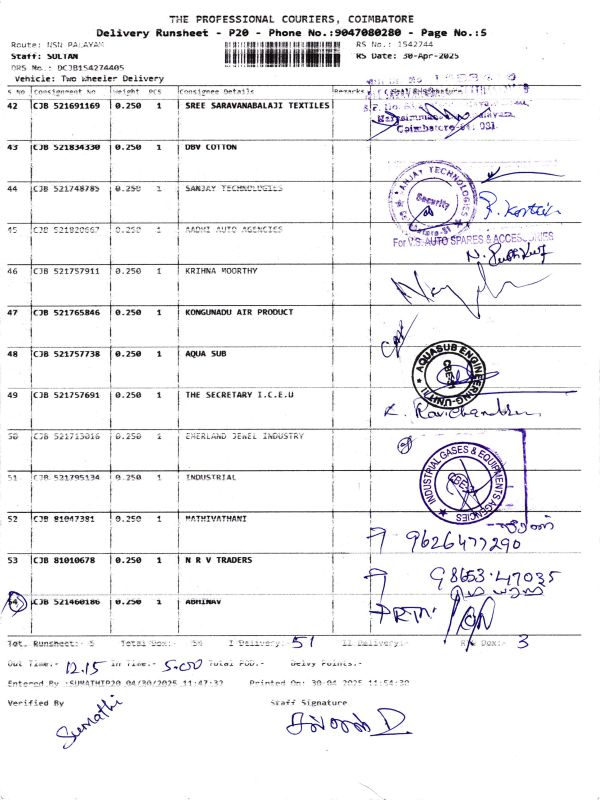 THE PROFESSIONAL COURIERS, COIMBATORE
Delivery Runsheet - P20 - Phone No.:9047080280 - Page No.:5
Route: NSN PALAYAM RS No.: 1542744
Staff: SULTAN RS Date: 30-Apr-2025
DRS No.: DCJB154274405
Vehicle: Two Wheeler Delivery
S No Consignment No Weight PCS Consignee Details Remarks
42 CJB 521691169 0.250 1 SREE SARAVANABALAJI TEXTILES
Coimbatore-641 031
43 CJB 521834330 0.250 1 DBV COTTON
44 CJB 521748785 0.250 1 SANJAY TECHNOLOGIES
SANJAY TECHNOLOGIES
Security
45 CJB 521820667 0.250 1 AADHI AUTO AGENCIES
For V.S. AUTO SPARES & ACCESSORIES
46 CJB 521757911 0.250 1 KRIHNA MOORTHY
47 CJB 521765846 0.250 1 KONGUNADU AIR PRODUCT
48 CJB 521757738 0.250 1 AQUA SUB
AQUASUB ENGINEERING-UNIT-II
49 CJB 521757691 0.250 1 THE SECRETARY I.C.E.U
K. Ravichandran
50 CJB 521713016 0.250 1 EMERLAND JEWEL INDUSTRY
51 CJB 521795134 0.250 1 INDUSTRIAL
INDUSTRIAL GASES & EQUIPMENTS AGENCIES
CBE
52 CJB 81047381 0.250 1 MATHIVATHANI
9626477290
53 CJB 81010678 0.250 1 N R V TRADERS
98653-47035
54 CJB 521460186 0.250 1 ABHINAV
RTN
Tot. Runsheet:- 5 Total Dox:- 54 I Delivery:- 51 II Delivery:- Dox:- 3
Out Time:- 12.15 In Time:- 5.00 Total POD:- Delvy Points:-
Entered By :SUMATHIP20 04/30/2025 11:47:32 Printed On: 30-04-2025 11:54:30
Verified By Staff Signature
Sumathi